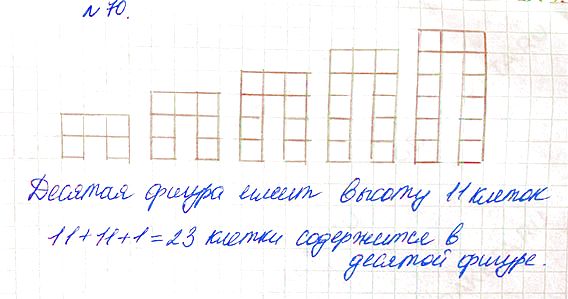 №70.
Десятая фигура имеет высоту 11 клеток
11+11+1=23 клетки содержится в
десятой фигуре.